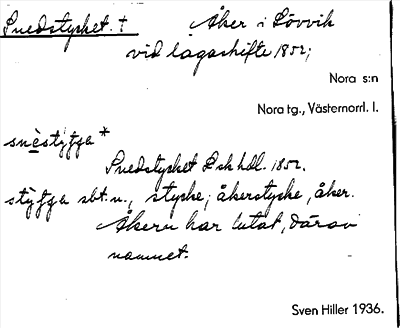 Snedstycket. † Åker i Lövvik
vid lagaskifte 1852;
Nora s:n
Nora tg., Västernorrl. l.
snèstýgga *
Snedstycket Lsk hdl. 1852.
stýgga sbt. n., stycke; åkerstycke, åker.
Åkern har lutat, därav
namnet.
Sven Hiller 1936.